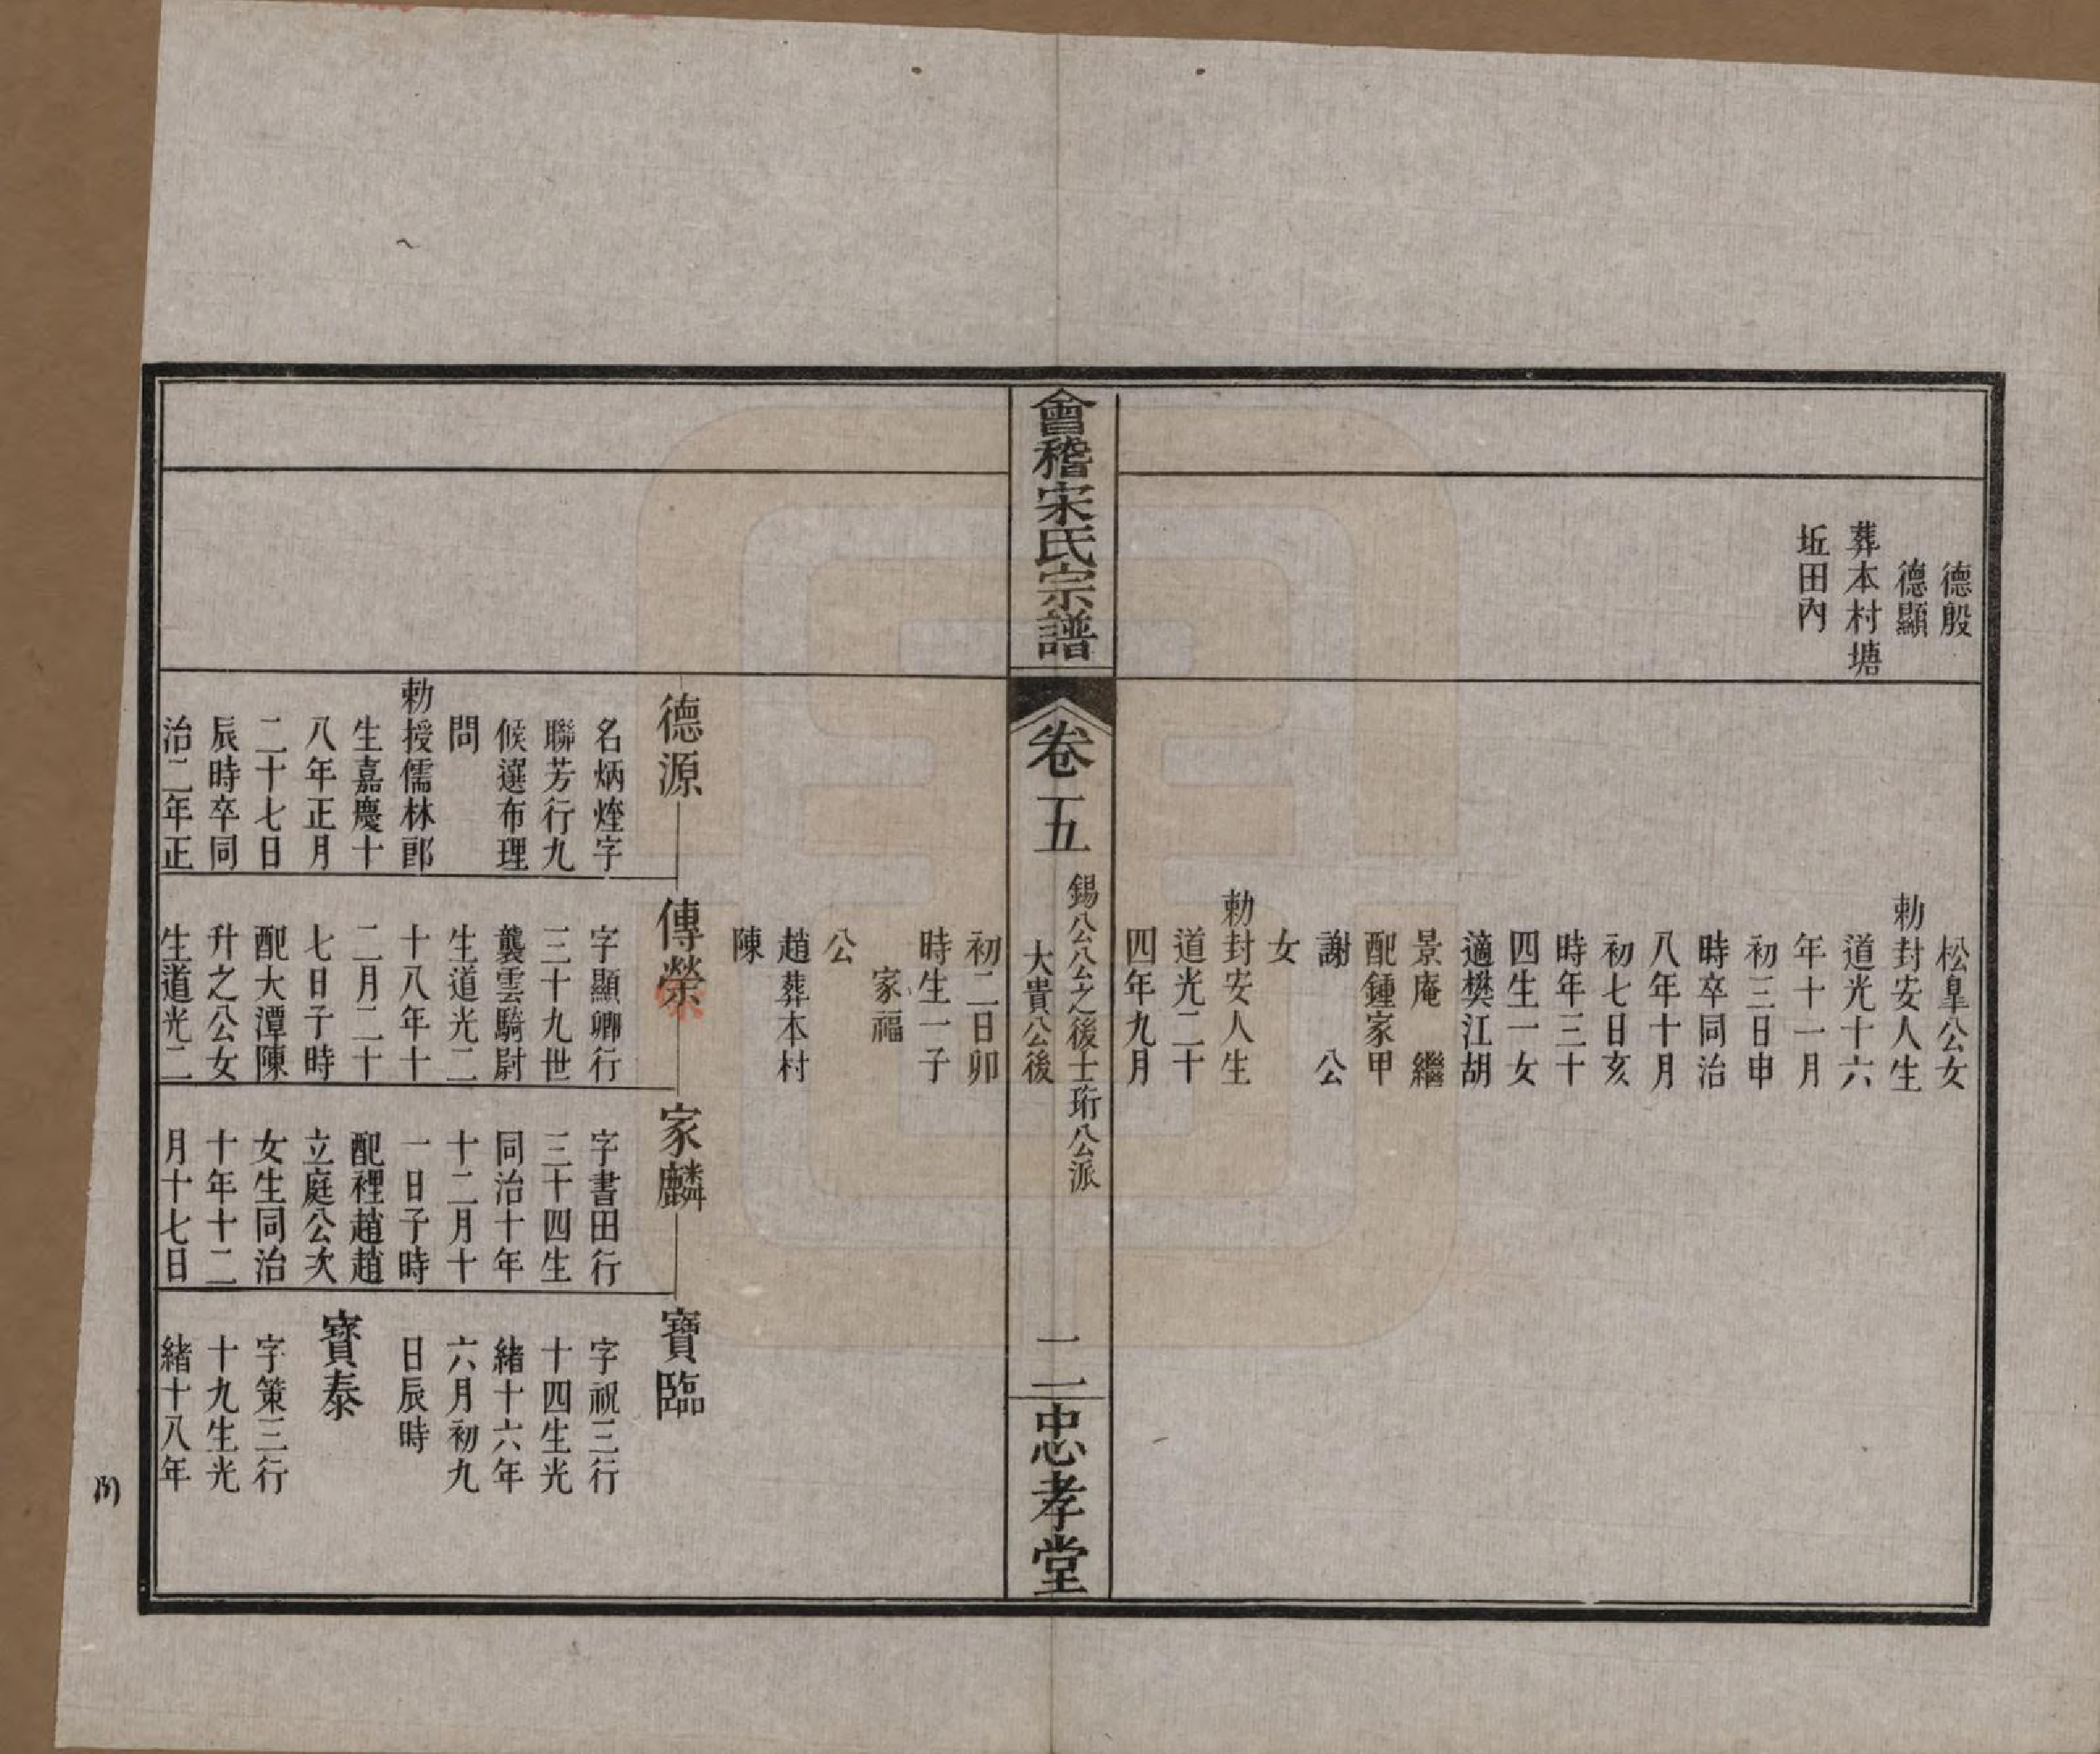 德殷
德顯
葬本村塘
坵田內
松臯公女
勅封安人生
道光十六
年十一月
初三日申
時卒同治
八年十月
初七日亥
時年三十
四生一女
適樊江胡
景庵　繼
配鍾家甲
謝　公
女
勅封安人生
道光二十
四年九月
會稽宋氏宗譜
卷五
錫八公之後士珩公派
大貴公後
二
忠孝堂
初二日卯
時生一子
家福
公
趙葬本村
陳
德源
名炳煃字
聯芳行九
候選布理
問
勅授儒林郎
生嘉慶十
八年正月
二十七日
辰時卒同
治二年正
傳榮
字顯卿行
三十九世
襲雲騎尉
生道光二
十八年十
二月二十
七日子時
配大潭陳
升之公女
生道光二
家麟
字書田行
三十四生
同治十年
十二月十
一日子時
配裡趙趙
立庭公次
女生同治
十年十二
月十七日
寶臨
字祝三行
十四生光
緒十六年
六月初九
日辰時
寶泰
字策三行
十九生光
緒十八年